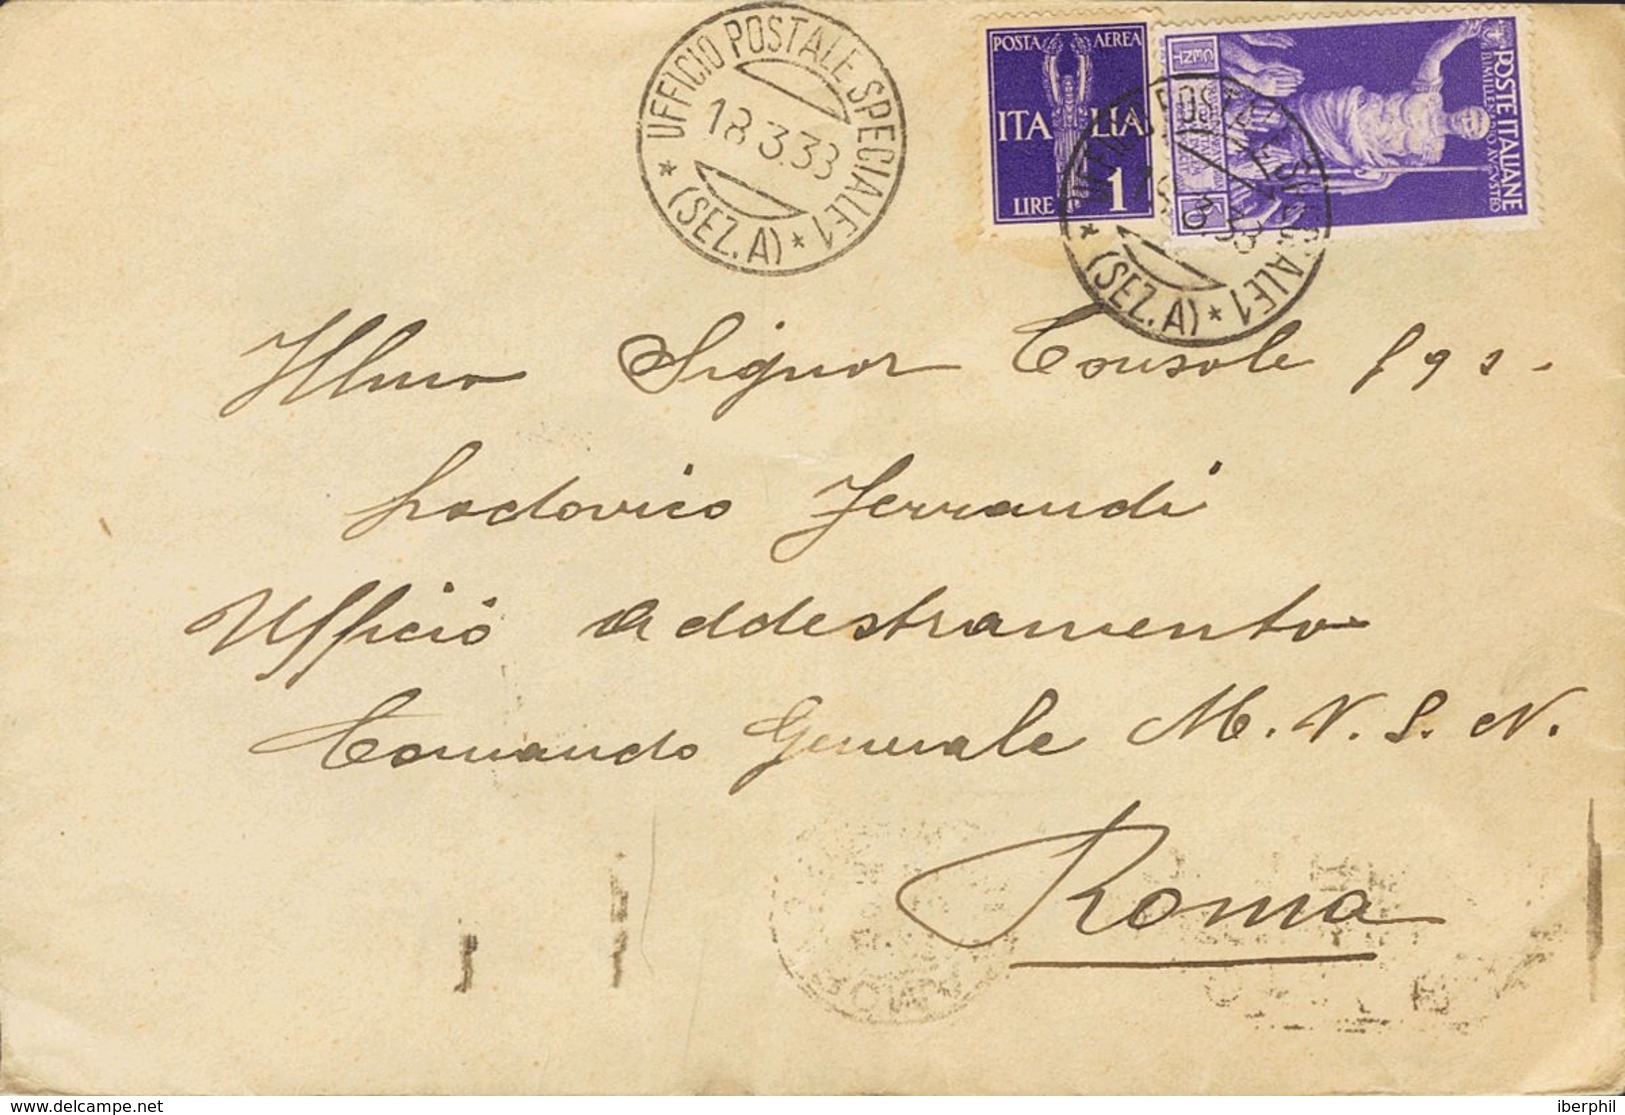 UFFICIO POSTALE SPECIALE 1
18.3.38
* (SEZ. A) *
POSTA AEREA
ITALIA
LIRE 1
POSTE ITALIANE
BIMILLENARIO AVGVSTEO
CENT
50
* (SEZ. A) *
Illmo Signor Console
Lodovico Ferrandi
Ufficio Addestramento
Comando Generale M. V. S. N.
Roma
www.delcampe.net
iberphil